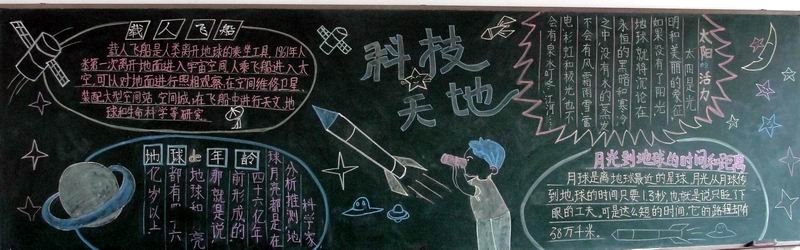 载人飞船
载人飞船是人类离开地球的乘坐工具,1961年人
类第一次离开地面进入宇宙空间人乘飞船进入太
空,可以对地面进行照相观察,在空间维修卫星
装配大型空间站,空间城,在飞船中进行天文,地
球和生命科学等研究。
科技
天地
太阳的活力
太阳是光
明和美丽的象征
如果没有了阳光,
地球就将沉沦在
永恒的黑暗和寒冷
之中,没有木的蒸发
不会有风,霜雨雪雷
电,彩虹和极光也不
会有泉水叮咚
地球的年龄
科学家
分析推测,地
球月亮都是在
四十六亿年
前形成的
那就是说,
地球和月亮
都有四十六
亿岁以上
月光到地球的时间和距离
月球是离地球最近的星球,月光从月球传
到地球的时间只要1.3秒,也就是说只眨1下
眼的工夫。可是这么短的时间,它的路程却有
38万千米。